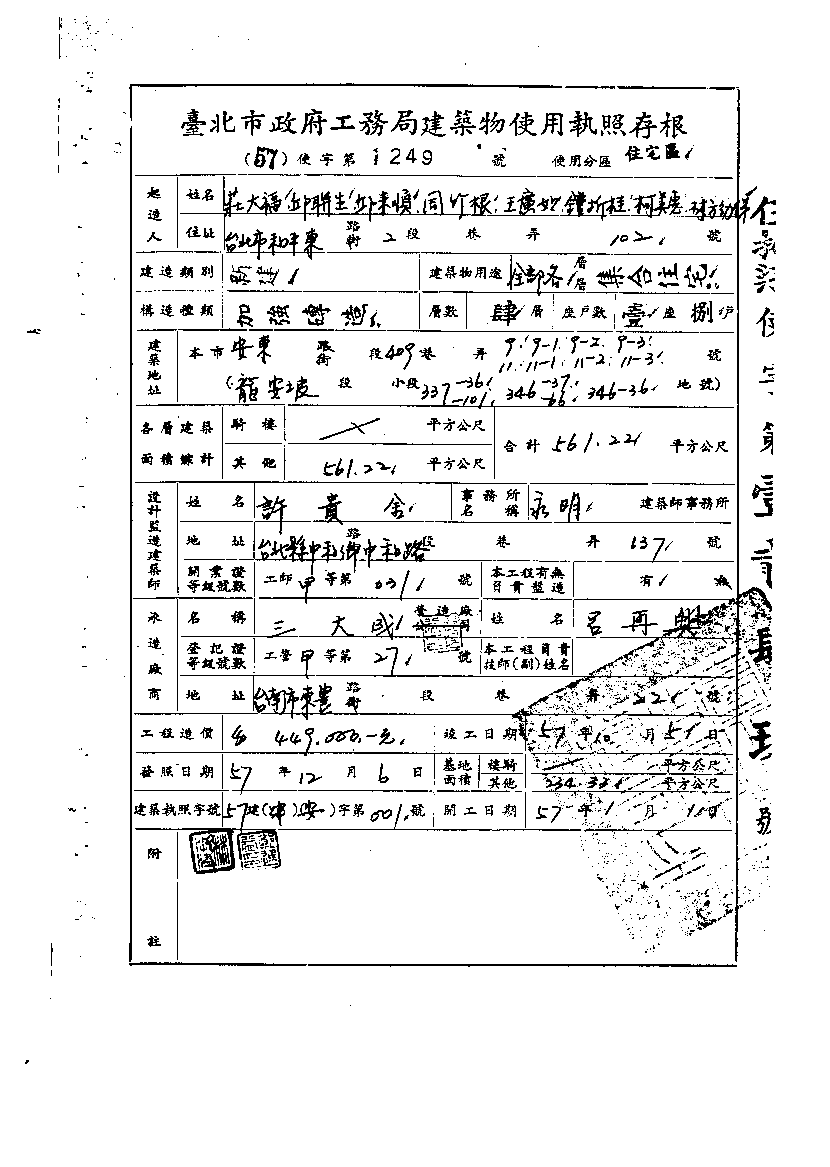 臺北市政府工務局建築物使用執照存根
(57) 使字第 1249 號 使用分區 住宅區
起造人 姓名 莊大福 邱聯生 邱来順 周竹根 王廣如 鐘圻桂 柯美惠
住址 台北市和平東 路街 2 段 巷 弄 102 號
建造類別 新建 建築物用途 全部各層層 集合住宅
構造種類 加強磚造 層數 肆 層 座戶數 壹 座 捌 戶
建築地址 本市 安東 路街 段 409 巷 弄 9. 9-1. 9-2. 9-3. 11. 11-1. 11-2. 11-3. 號
(龍安坡 段 小段 337-36 -101. 346-37 -66. 346-36 地號)
各層建築面積總計 騎樓 平方公尺 合計 561.22 平方公尺
其他 561.22 平方公尺
設計監造建築師 姓名 許貴舍 事務所名稱 永明 建築師事務所
地址 台北縣中和鄉中和路 路 段 巷 弄 137 號
開業證等級號數 工師 甲 等第 031 號 本工程有無負責監造 有 無
承造廠商 名稱 三大成 營造廠公司 姓名 呂再興
登記證等級號數 工營 甲 等第 271 號 本工程負責技師(副)姓名
地址 台南市東豊 路街 段 巷 弄 22 號
工程造價 449.000.-元 竣工日期 57 年 10 月 5 日
發照日期 57 年 12 月 6 日 基地面積 樓騎 平方公尺
其他 234.33 平方公尺
建築執照字號 57 建( )(安)字第 001 號 開工日期 57 年 1 月 1 日
附註
使字第壹
號